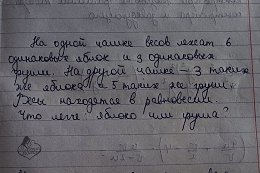 На одной чашке весов лежат 6
одинаковых яблок и 3 одинаковых
груши. На другой чашке – 3 таких
же яблока и 5 таких же груш.
Весы находятся в равновесии.
Что легче яблоко или груша?